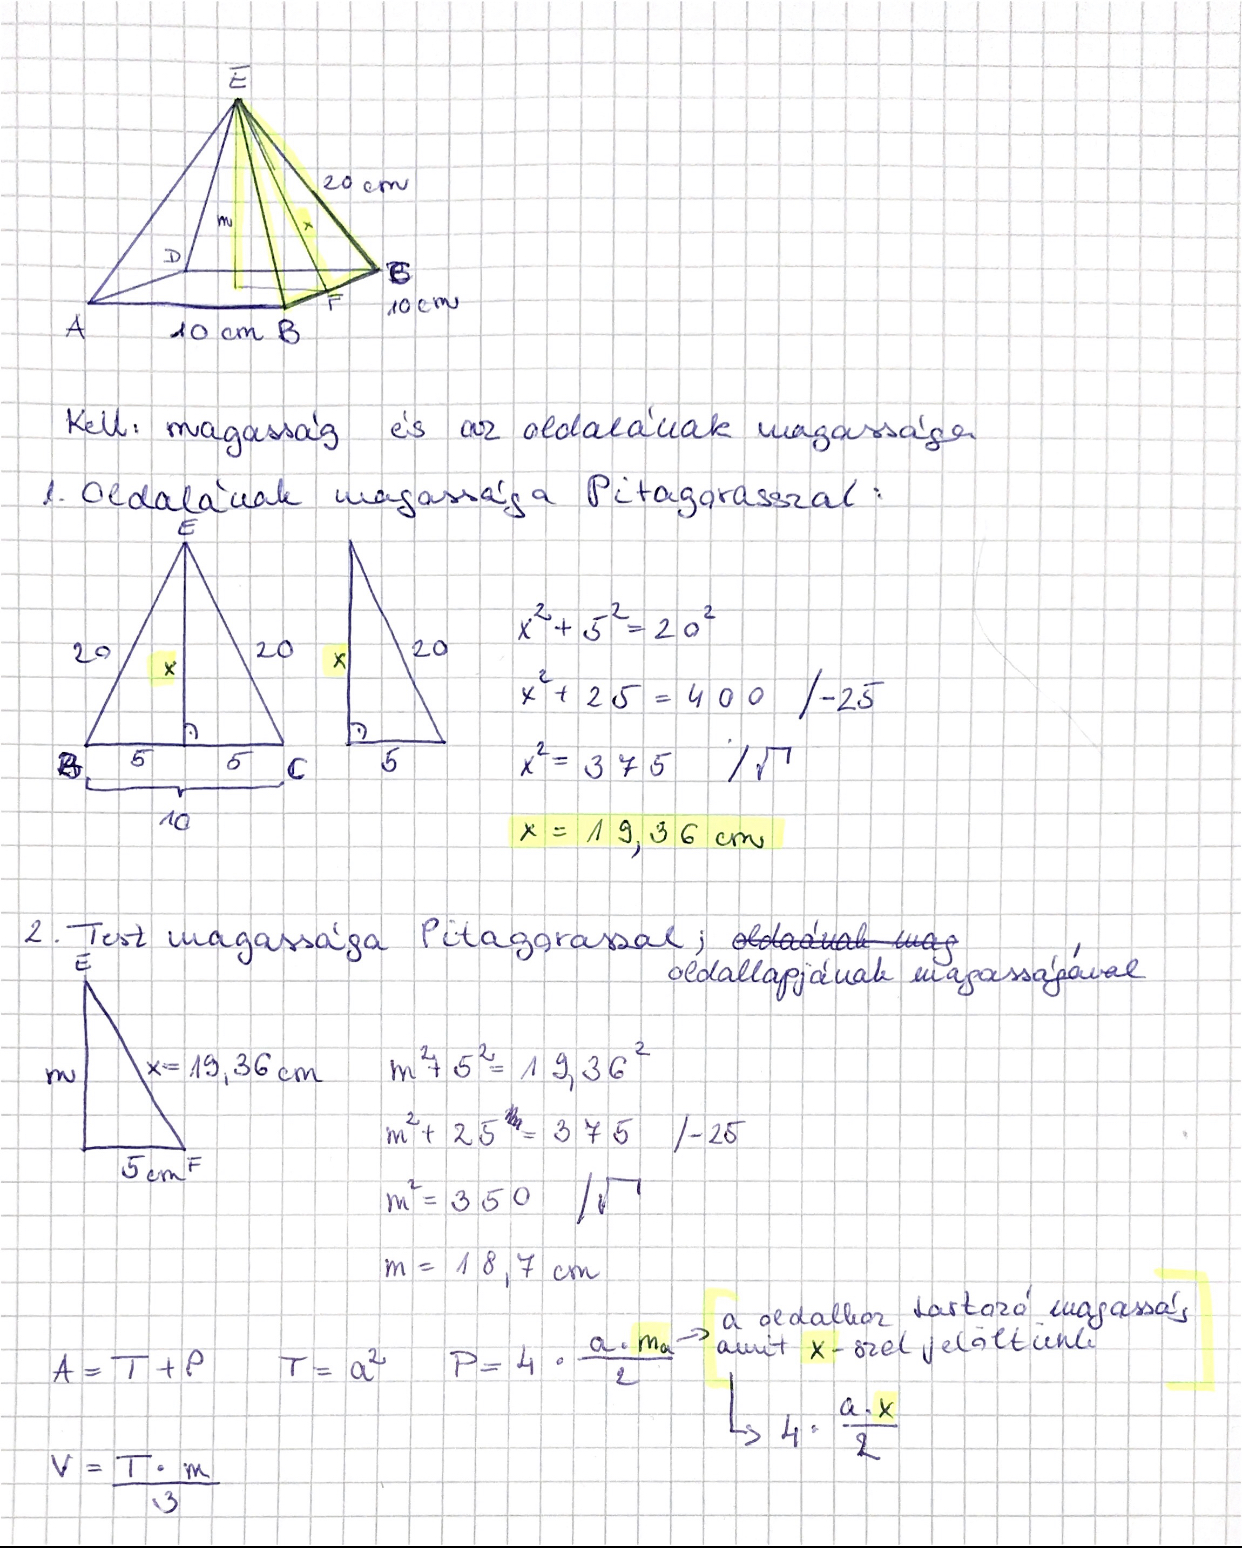 E
20 cm
m
x
D
C
F
10 cm
A
10 cm B
Kell: magasság és az oldalának magassága
1. Oldalának magassága Pitagorasszal:
E
20
x
20
x
20
B
5
5
C
5
10
x² + 5² = 20²
x² + 25 = 400 /-25
x² = 375 /√
x = 19,36 cm
2. Test magassága Pitagorasszal; oldaának mag
oldallapjának magasságával
E
m
x = 19,36 cm
5 cm F
m² + 5² = 19,36²
m² + 25 = 375 /-25
m² = 350 /√
m = 18,7 cm
A = T + P T = a² P = 4 · (a · mₐ)/2 → [a oldalhoz tartozó magasság
amit x-szel jelöltünk]
↳ 4 · (a · x)/2
V = (T · m)/3